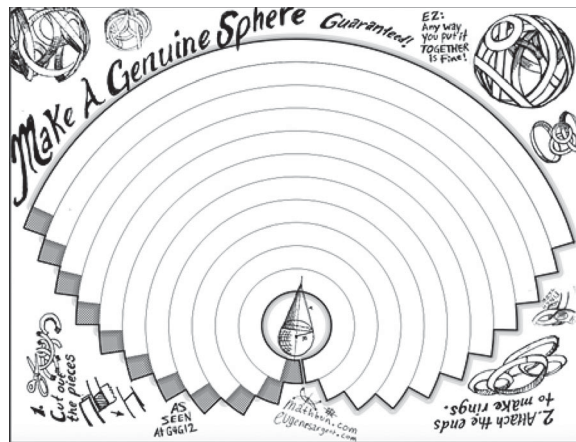 Make A Genuine Sphere
Guaranteed!
EZ:
Any way
you put it
TOGETHER
is fine!
1.
Cut out
the pieces
AS
SEEN
At G4G12
mathbun.com
eugenesargent.com
2. Attach the ends
to make rings.